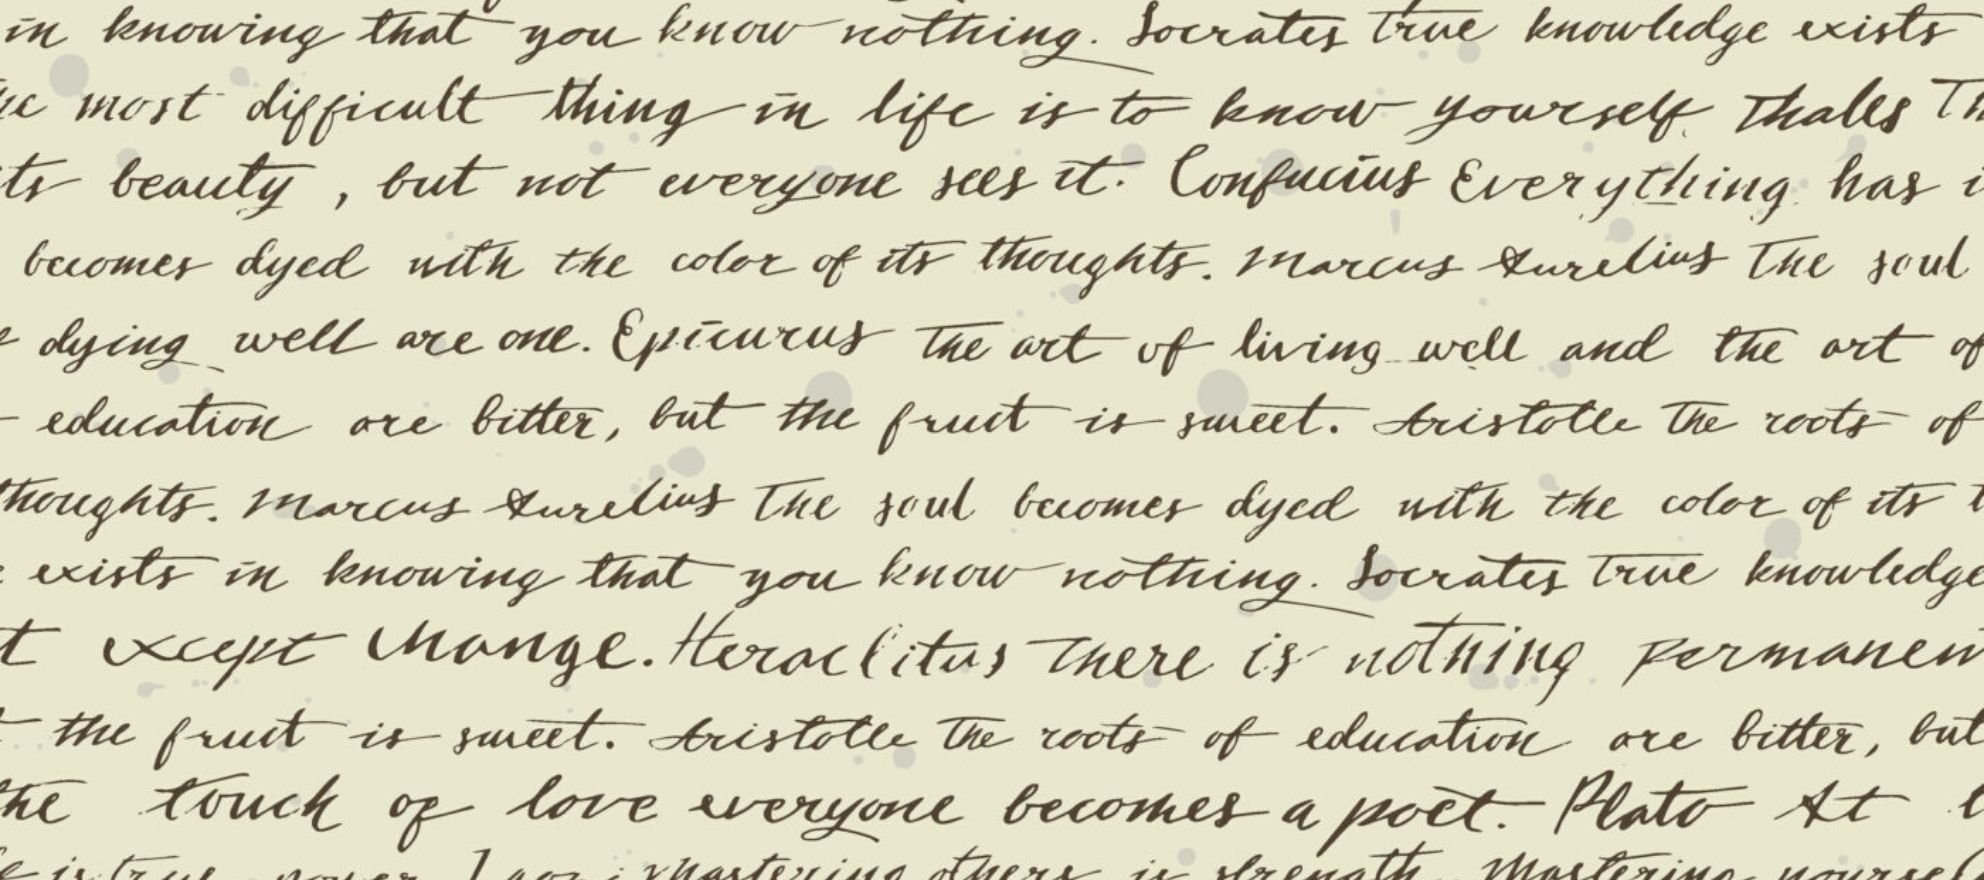 in knowing that you know nothing. Socrates True knowledge exists
he most difficult thing in life is to know yourself. Thales Th
ts beauty, but not everyone sees it. Confucius Everything has i
becomes dyed with the color of its thoughts. Marcus Aurelius The soul
dying well are one. Epicurus The art of living well and the art of
education are bitter, but the fruit is sweet. Aristotle The roots of
thoughts. Marcus Aurelius The soul becomes dyed with the color of its t
exists in knowing that you know nothing. Socrates True knowledge
t except change. Heraclitus There is nothing permanen
the fruit is sweet. Aristotle The roots of education are bitter, but
the touch of love everyone becomes a poet. Plato At
is true power. Mastering others is strength. Mastering yourself